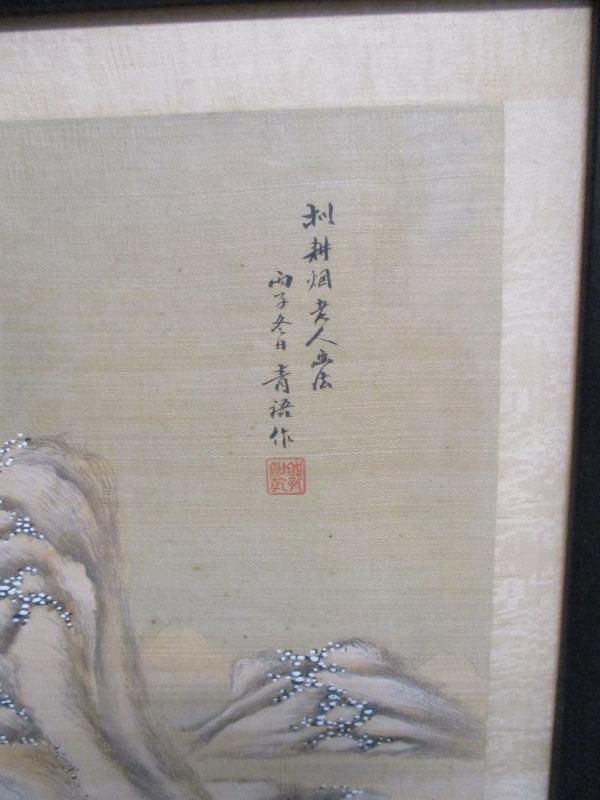 拟耕烟老人画法
丙子冬日青语作